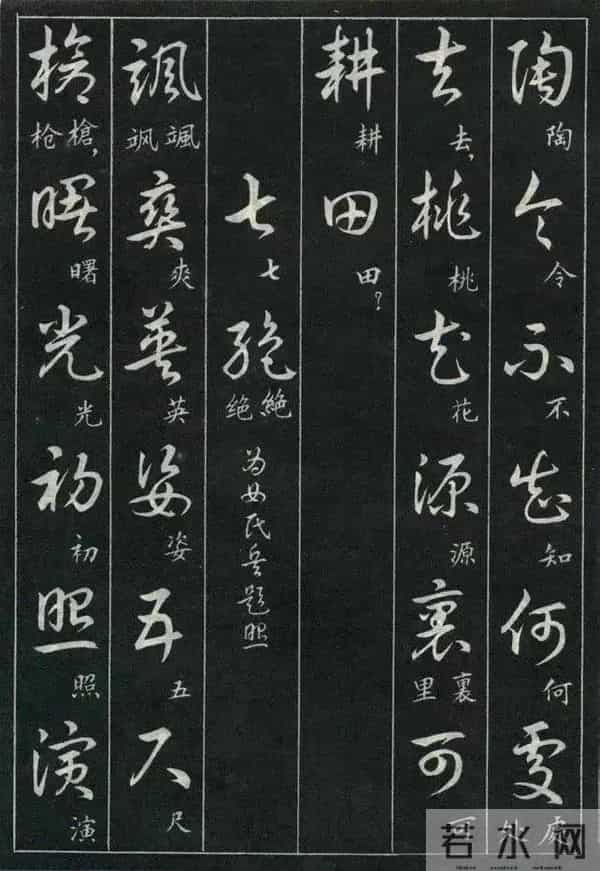 陶令不知何處
陶 令 不 知 何 處处
去桃花源裏可
去, 桃 花 源 裏里 可
耕田
耕 田?
七絕
七 絕绝
为女民兵题照
颯爽英姿五尺
颯飒 爽 英 姿 五 尺
槍曙光初照演
槍,枪 曙 光 初 照 演
若水网